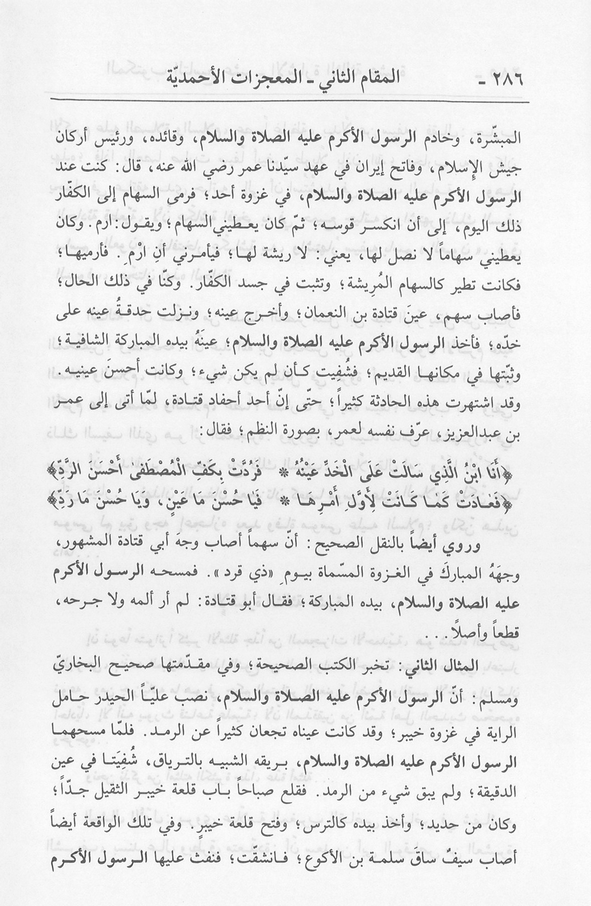 ٢٨٦ -
المقام الثاني - المعجزات الأحمديّة
المبشّرة، وخادم الرسول الأكرم عليه الصلاة والسلام، وقائده، ورئيس أركان
جيش الإسلام، وفاتح إيران في عهد سيّدنا عمر رضي الله عنه، قال: كنت عند
الرسول الأكرم عليه الصلاة والسلام، في غزوة أحد؛ فرمى السهام إلى الكفّار
ذلك اليوم، إلى أن انكسر قوسه؛ ثمّ كان يعطيني السهام؛ ويقول: ارم. وكان
يعطيني سهاماً لا نصل لها، يعني: لا ريشة لها؛ فيأمرني أن ارْمِ. فأرميها؛
فكانت تطير كالسهام المُرِيشة؛ وتثبت في جسد الكفّار. وكنّا في ذلك الحال؛
فأصاب سهم، عينَ قتادة بن النعمان؛ وأخرج عينه؛ ونزلت حدقةُ عينه على
خدّه؛ فأخذ الرسول الأكرم عليه الصلاة والسلام؛ عينَهُ بيده المباركة الشافية؛
وثبّتها في مكانها القديم؛ فشُفِيت كأن لم يكن شيء؛ وكانت أحسنَ عينيه.
وقد اشتهرت هذه الحادثة كثيراً؛ حتّى إنّ أحد أحفاد قتادة، لمّا أتى إلى عمر
بن عبدالعزيز، عرّف نفسه لعمر، بصورة النظم؛ فقال:
﴿أَنَا ابْنُ الَّذِي سَالَتْ عَلَى الْخَدِّ عَيْنُهُ * فَرُدَّتْ بِكَفِّ الْمُصْطَفٰى أَحْسَنَ الرَّدِّ﴾
﴿فَعَادَتْ كَمَا كَانَتْ لِأَوَّلِ أَمْرِهَا * فَيَا حُسْنَ مَا عَيْنٍ، وَيَا حُسْنَ مَا رَدِّ﴾
وروي أيضاً بالنقل الصحيح: أنّ سهماً أصاب وجهَ أبي قتادة المشهور،
وجهَهُ المباركَ في الغزوة المسّماة بيوم «ذي قرد». فمسحه الرسول الأكرم
عليه الصلاة والسلام، بيده المباركة؛ فقال أبو قتادة: لم أر ألمه ولا جرحه،
قطعاً وأصلاً...
المثال الثاني: تخبر الكتب الصحيحة؛ وفي مقدّمتها صحيح البخاريّ
ومسلم: أنّ الرسول الأكرم عليه الصلاة والسلام، نصب عليّاً الحيدر حامل
الراية في غزوة خيبر؛ وقد كانت عيناه تجعان كثيراً عن الرمد. فلمّا مسحهما
الرسول الأكرم عليه الصلاة والسلام، بريقه الشبيه بالترياق، شُفِيَتا في عين
الدقيقة؛ ولم يبق شيء من الرمد. فقلع صباحاً باب قلعة خيبر الثقيل جدّاً؛
وكان من حديد؛ وأخذ بيده كالترس؛ وفتح قلعة خيبرٍ. وفي تلك الواقعة أيضاً
أصاب سيفٌ ساقَ سلمة بن الأكوع؛ فانشقّت؛ فنفث عليها الرسول الأكرم